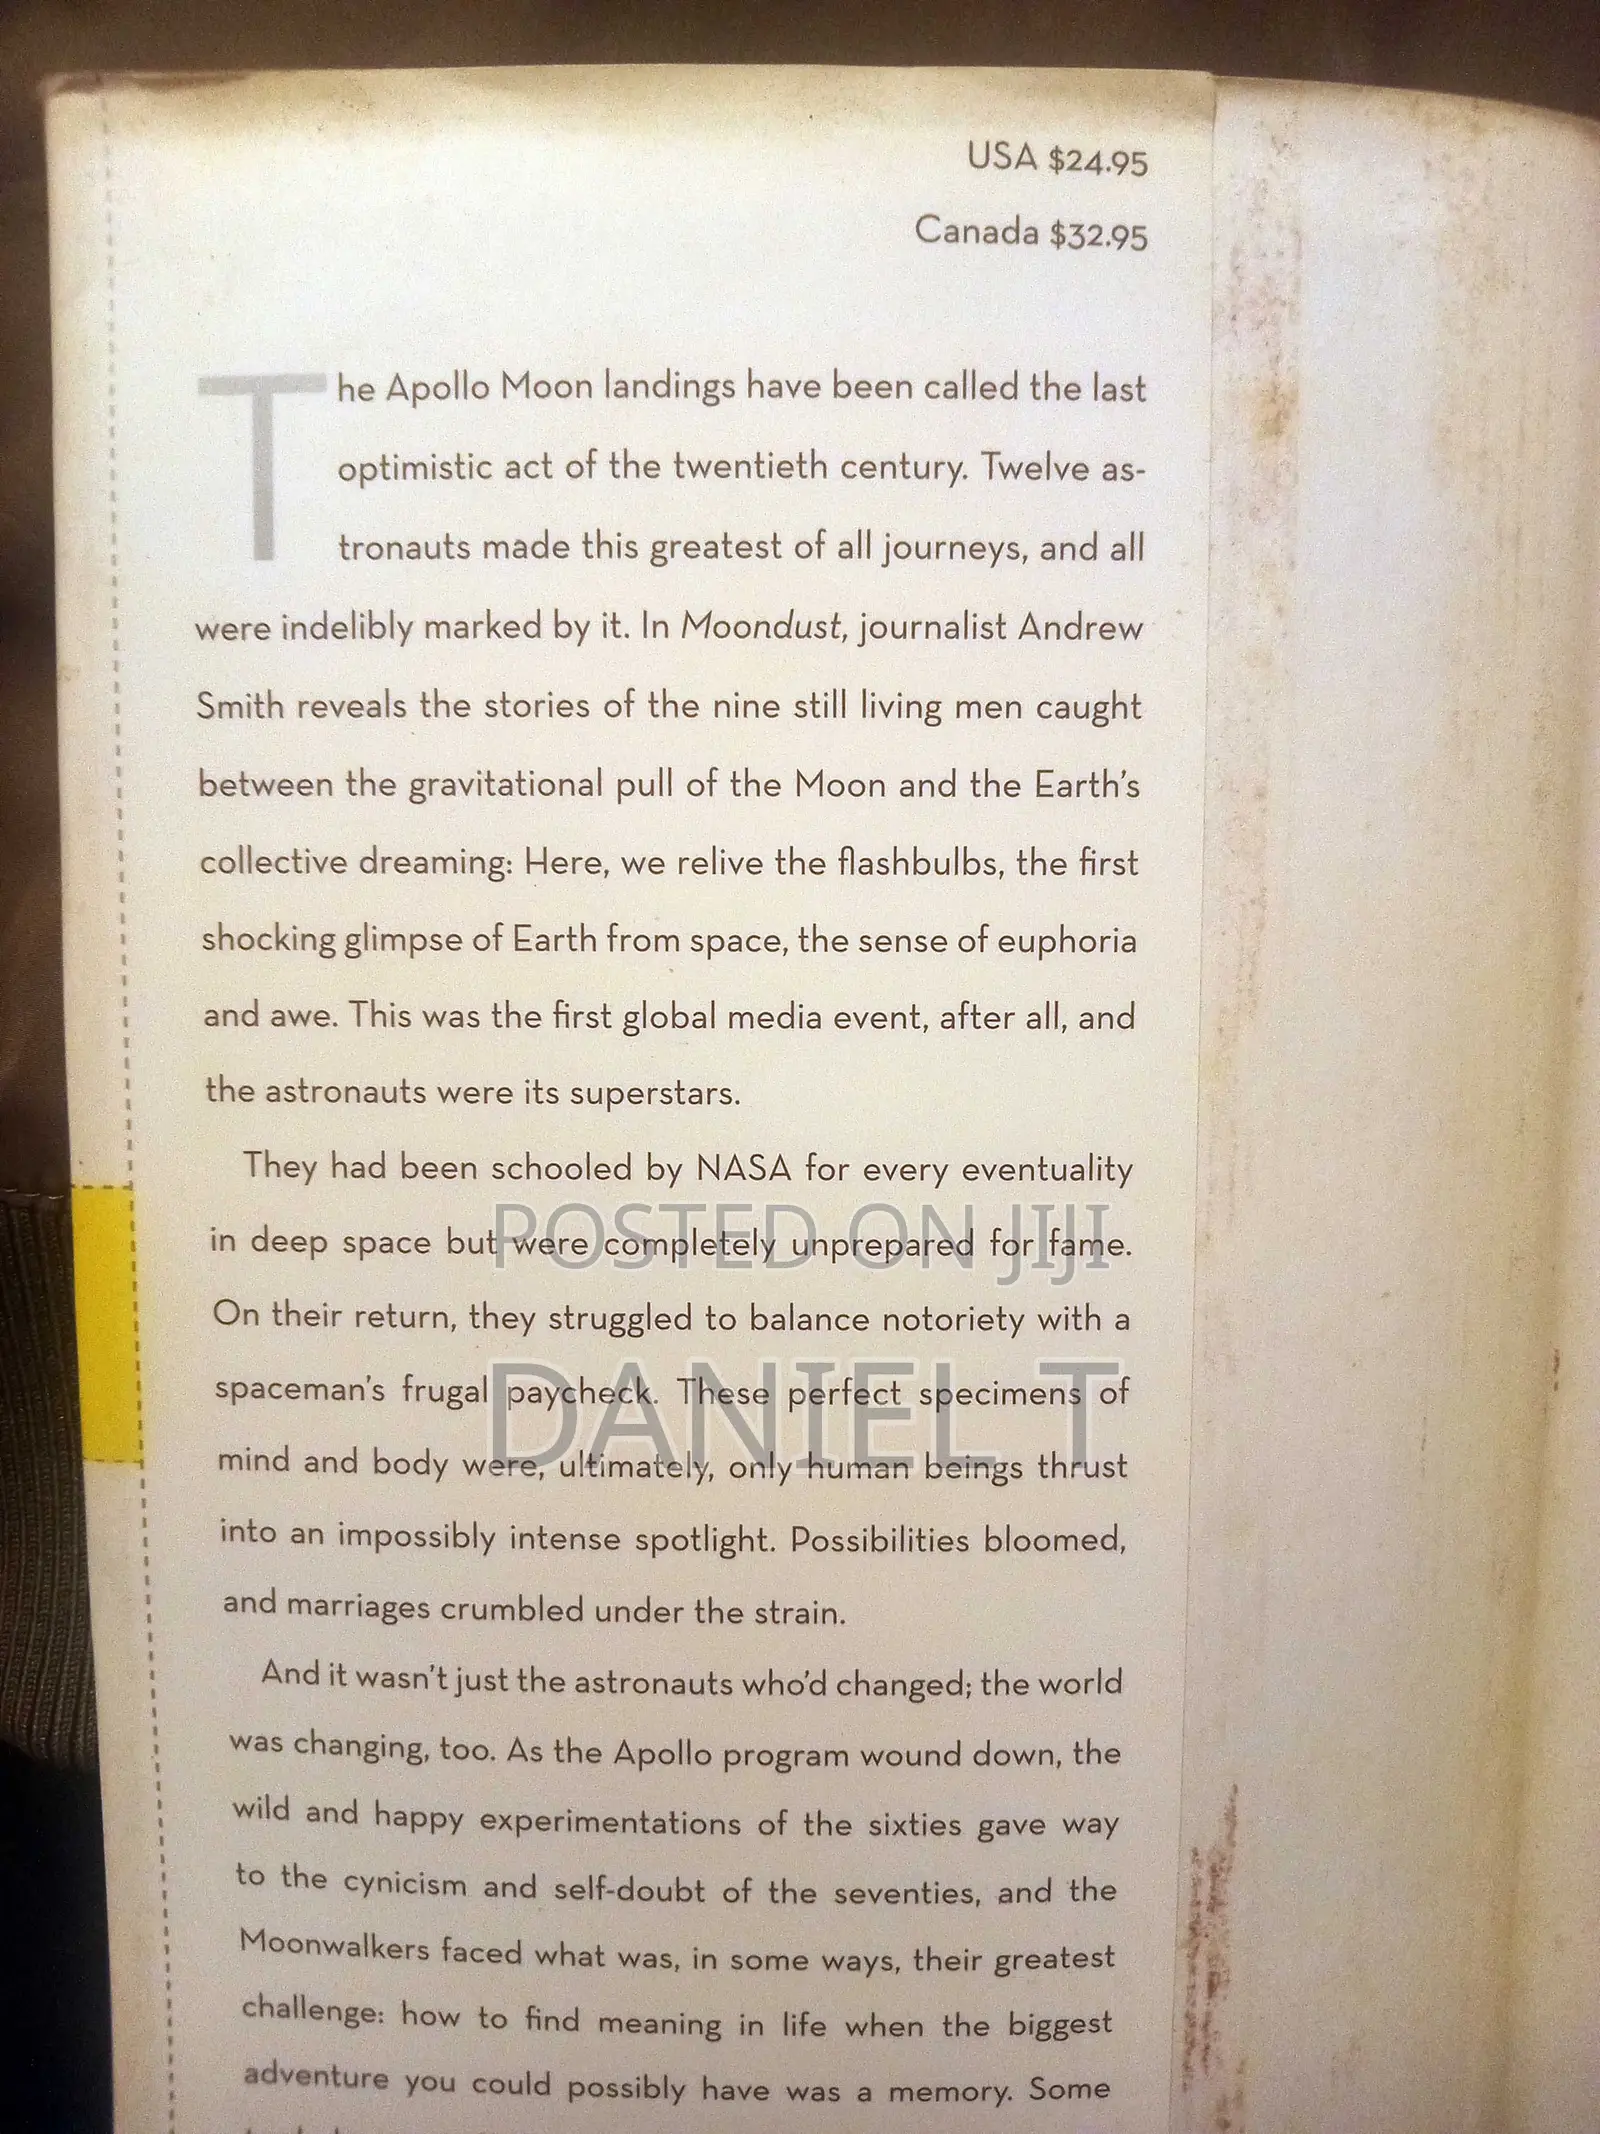 USA $24.95
Canada $32.95
The Apollo Moon landings have been called the last
optimistic act of the twentieth century. Twelve as-
tronauts made this greatest of all journeys, and all
were indelibly marked by it. In Moondust, journalist Andrew
Smith reveals the stories of the nine still living men caught
between the gravitational pull of the Moon and the Earth's
collective dreaming: Here, we relive the flashbulbs, the first
shocking glimpse of Earth from space, the sense of euphoria
and awe. This was the first global media event, after all, and
the astronauts were its superstars.
They had been schooled by NASA for every eventuality
POSTED ON JIJI
in deep space but were completely unprepared for fame.
On their return, they struggled to balance notoriety with a
DANIEL T
spaceman's frugal paycheck. These perfect specimens of
mind and body were, ultimately, only human beings thrust
into an impossibly intense spotlight. Possibilities bloomed,
and marriages crumbled under the strain.
And it wasn't just the astronauts who'd changed; the world
was changing, too. As the Apollo program wound down, the
wild and happy experimentations of the sixties gave way
to the cynicism and self-doubt of the seventies, and the
Moonwalkers faced what was, in some ways, their greatest
challenge: how to find meaning in life when the biggest
adventure you could possibly have was a memory. Some